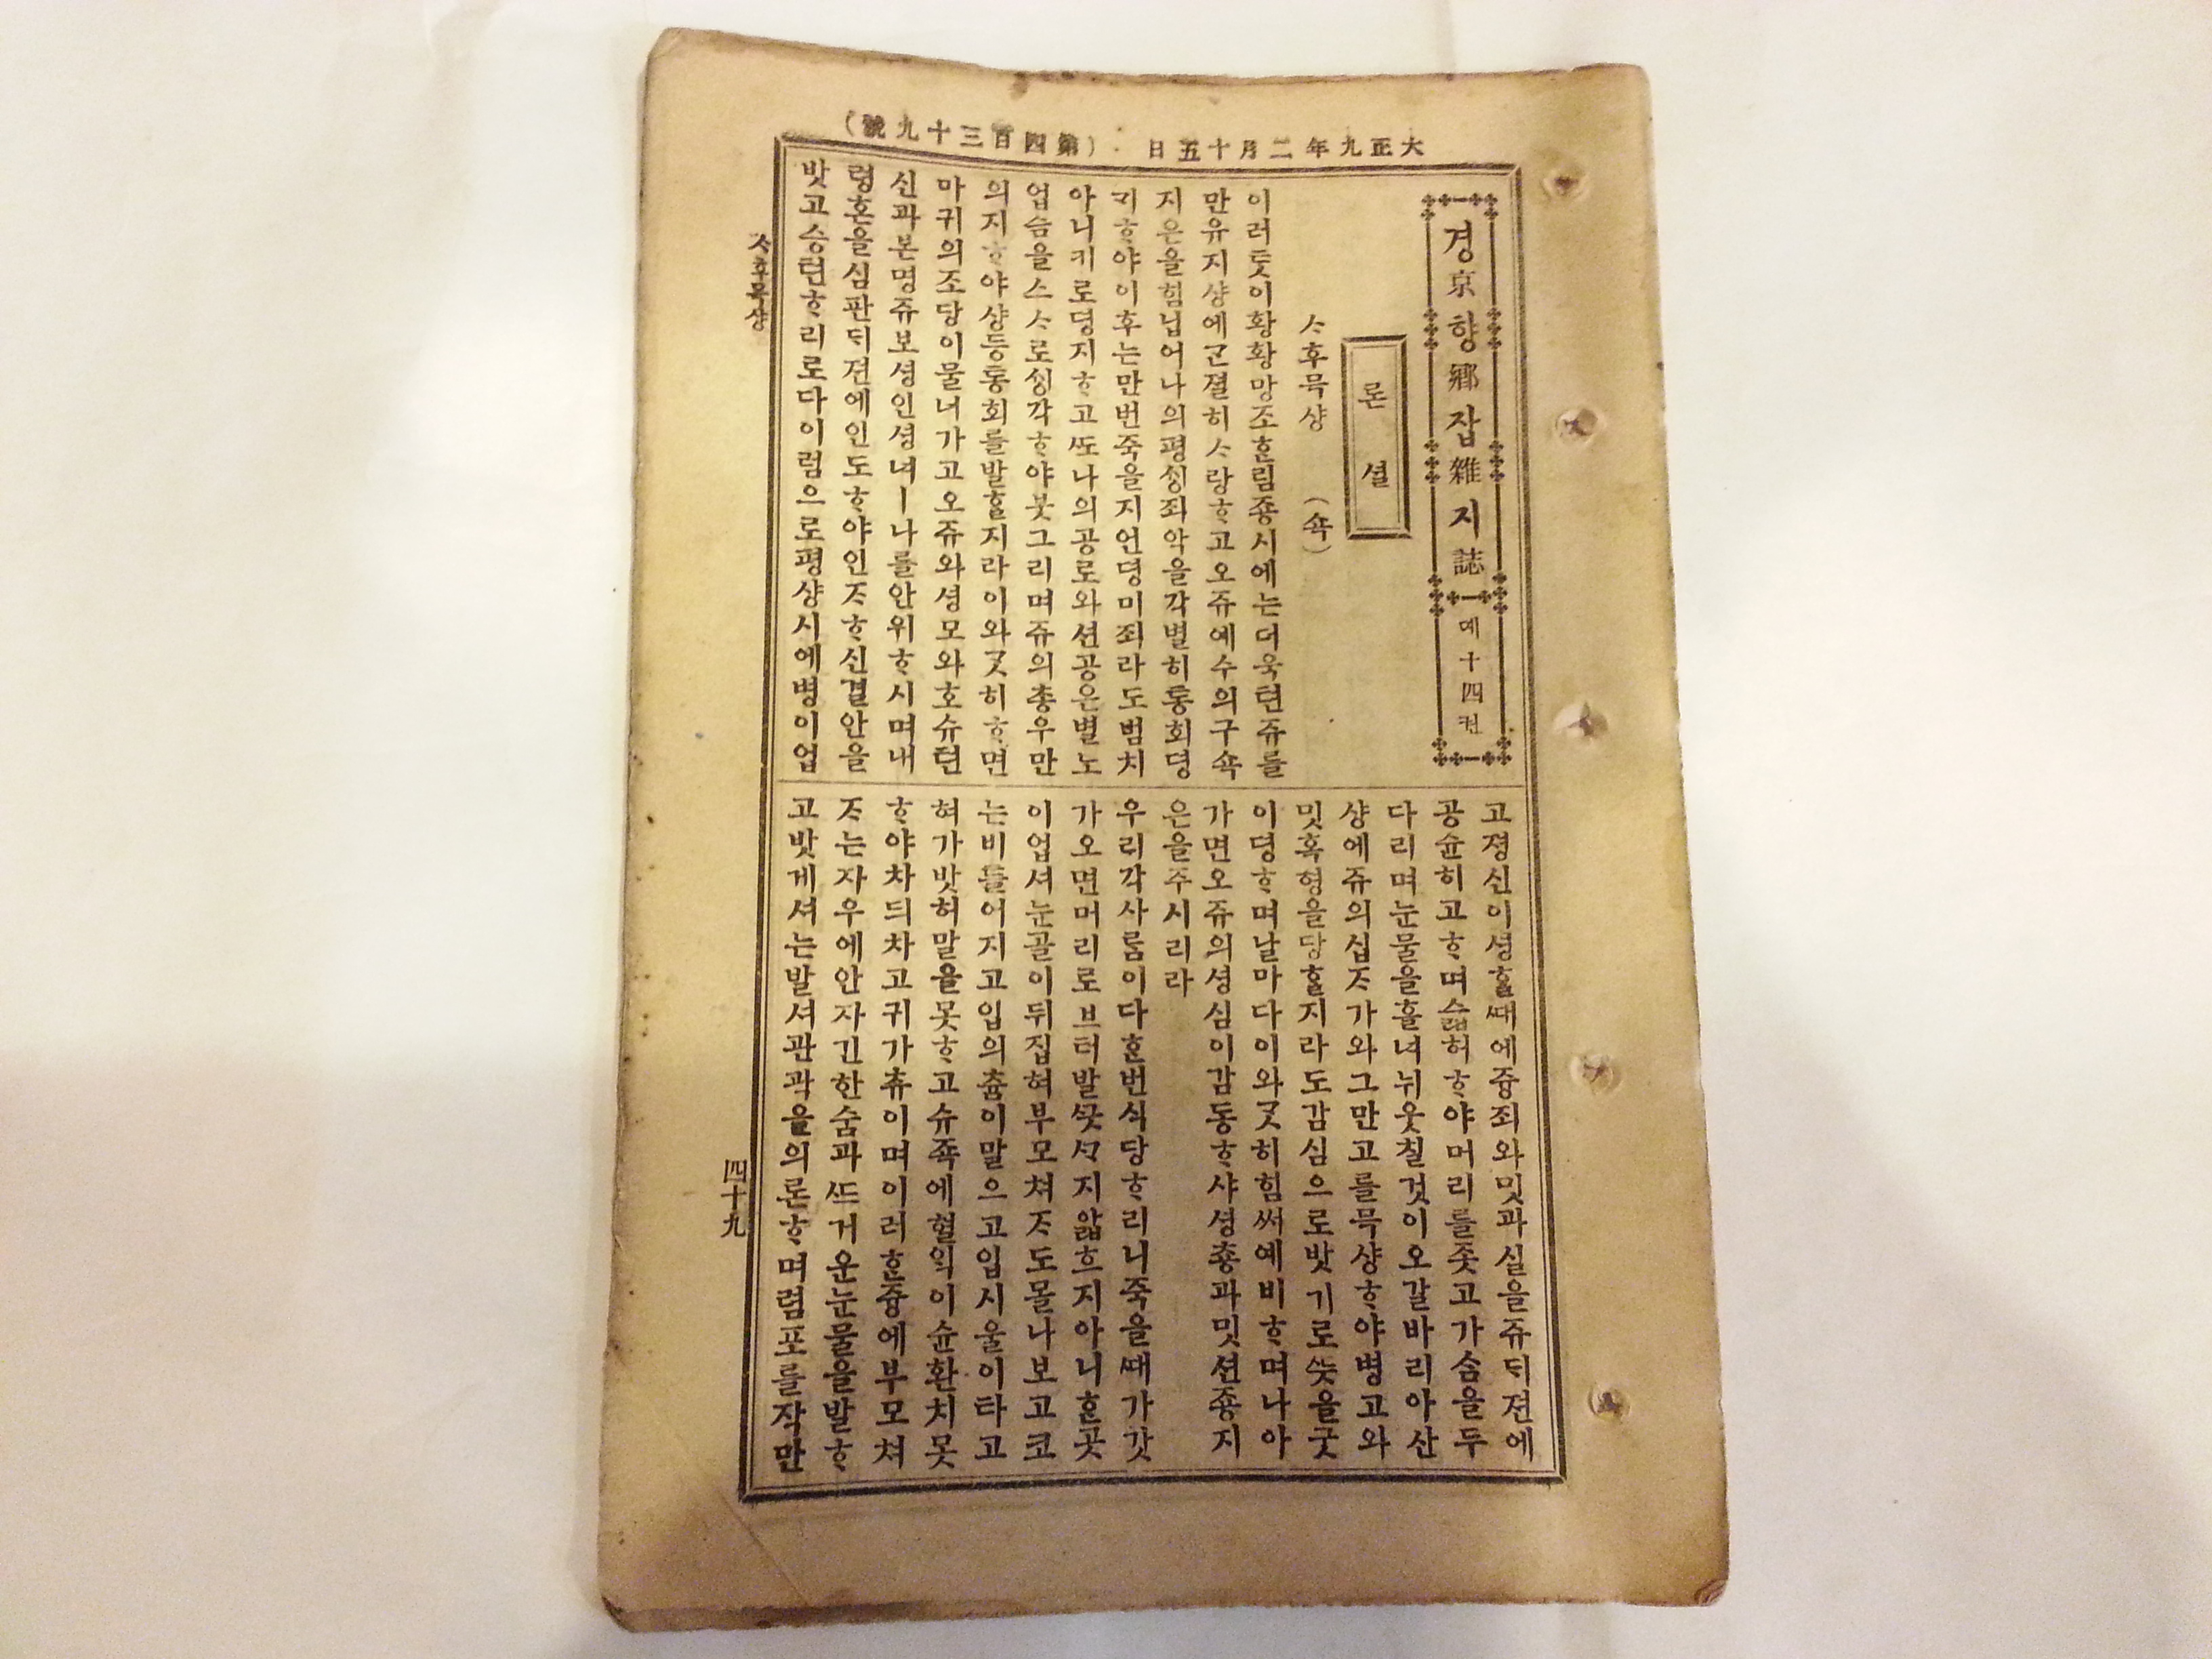 大正九年二月十五日 (第四百三十九號)
경京향鄕잡雜지誌 뎨十四권
론셜
ᄉᆞ후묵샹 (쇽)
이러툿이황황망조ᄒᆞᆫ림죵시에는더욱텬쥬를
만유지샹에군졀히ᄉᆞ랑ᄒᆞ고오쥬예수의구쇽
지은을힘닙어나의평ᄉᆡᆼ죄악을각별히통회뎡
ᄀᆡᄒᆞ야이후는만번죽을지언뎡미죄라도범치
아니키로뎡지ᄒᆞ고ᄯᅩ나의공로와션공은별노
업슴을스ᄉᆞ로ᄉᆡᆼ각ᄒᆞ야붓그리며쥬의춍우만
의지ᄒᆞ야샹등통회를발ᄒᆞᆯ지라이와ᄀᆞᆺ히ᄒᆞ면
마귀의조당이물너가고오쥬와셩모와호슈텬
신과본명쥬보셩인셩녀ㅣ나를안위ᄒᆞ시며내
령혼을심판ᄃᆡ젼에인도ᄒᆞ야인ᄌᆞᄒᆞ신결안을
밧고승텬ᄒᆞ리로다이럼으로평샹시에병이업
고졍신이셩ᄒᆞᆯᄯᅢ에즁죄와밋과실을쥬ᄃᆡ젼에
공슌히고ᄒᆞ며슯허ᄒᆞ야머리를좃고가ᄉᆞᆷ을두
다리며눈물을흘녀뉘웃칠것이오갈바리아산
샹에쥬의십ᄌᆞ가와그만고를묵샹ᄒᆞ야병고와
밋혹형을당ᄒᆞᆯ지라도감심으로밧기로ᄯᅳᆺ을굿
이뎡ᄒᆞ며날마다이와ᄀᆞᆺ히힘써예비ᄒᆞ며나아
가면오쥬의셩심이감동ᄒᆞ샤셩춍과밋션죵지
은을주시리라
우리각사ᄅᆞᆷ이다ᄒᆞᆫ번식당ᄒᆞ리니죽을ᄯᅢ가갓
가오면머리로브터발ᄭᅳᆺᄭᆞ지압흐지아니ᄒᆞᆫ곳
이업셔눈골이뒤집혀부모쳐ᄌᆞ도몰나보고코
는비틀어지고입의츔이말으고입시울이타고
혀가밧허말을못ᄒᆞ고슈죡에혈ᄆᆡᆨ이슌환치못
ᄒᆞ야차ᄃᆡ차고귀가츄이며이러ᄒᆞᆫ즁에부모쳐
ᄌᆞ는자우에안자긴한숨과ᄯᅳ거운눈물을발ᄒᆞ
고밧게셔는발셔관곽을의론ᄒᆞ며렴포를작만
ᄉᆞ후묵샹
四十九